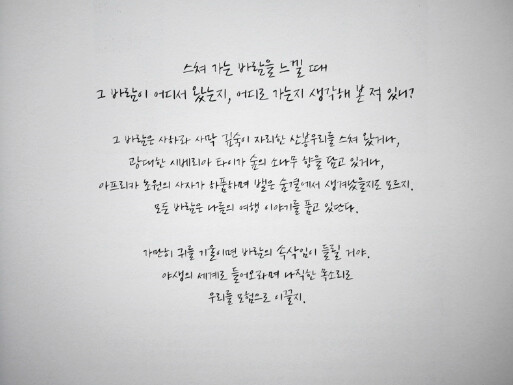 스쳐 가는 바람을 느낄 때
그 바람이 어디서 왔는지, 어디로 가는지 생각해 본 적 있니?
그 바람은 사하라 사막 깊숙이 자리한 산봉우리를 스쳐 왔거나,
광대한 시베리아 타이가 숲의 소나무 향을 담고 있거나,
아프리카 초원의 사자가 하품하며 뱉은 숨결에서 생겨났을지도 모르지.
모든 바람은 나름의 여행 이야기를 품고 있단다.
가만히 귀를 기울이면 바람의 속삭임이 들릴 거야.
야생의 세계로 들어오라며 나직한 목소리로
우리를 모험으로 이끌지.